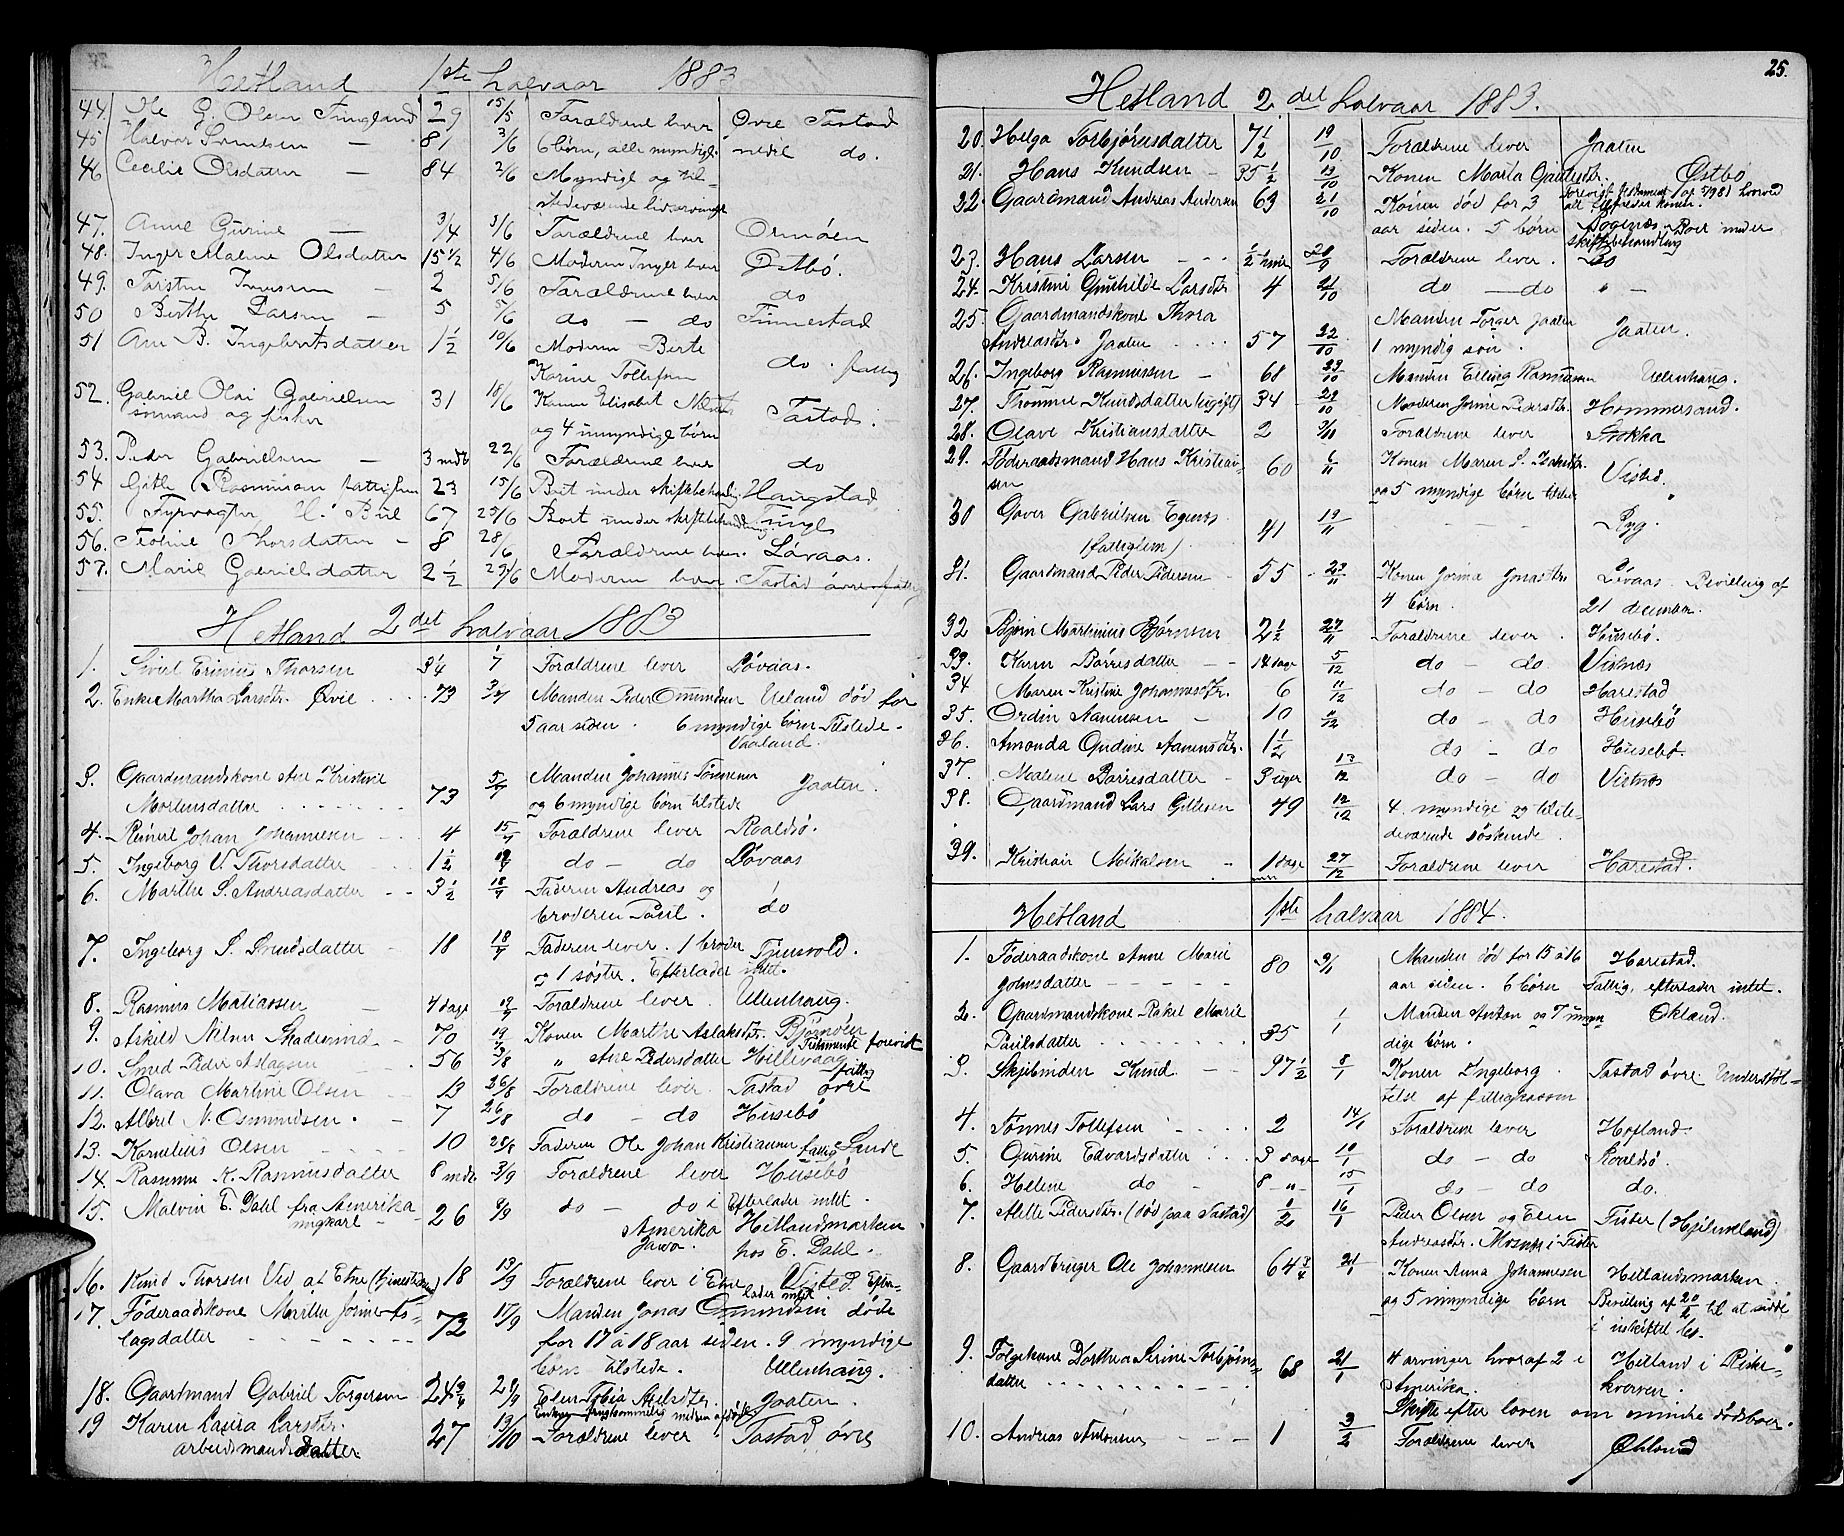 Hetland 1ste halvaar 1883
44. Ole G. Olsen Tungland 29 15/5 Forældrene lever Øvre Tastad
45 Halvor Svendsen — 81 3/6 6 børn, alle myndige nedre do.
46 Cecilie Olsdatter — 84 2/6 Myndige og til-
stedeværende livsarvinger
47. Anne Gurine — 3/4 3/6 Forældrene lever Ormøen
48. Inger Malene Olsdatter 15 1/2 4/6 Moderen Inger lever Østbø.
49. Torsten — 2 5/6 Forældrene lever do
50 Berthe Larsen — 5 5/6 do — do Finnestad
51 Ane B. Ingebretsdatter 1 1/2 10/6 Moderen Berte
Karine Tollefsen do. fattig
52. Gabriel Olai Gabrielsen 31 18/6 Konen Elisabet
sømand og fisker og 4 umyndige børn Tastad.
53. Peder Gabrielsen — 3 mdr 22/6 Forældrene lever do
54 Gitle Rasmussen fattiglem 23 15/6 Boet under skiftebehandling Haugstad
55. Fyrvogter H. Bull 67 25/6 Boet under skiftebehandling Tungenes
56. Thorsdatter — 8 28/6 Forældrene lever. Løvaas.
57. Marie Gabrielsdatter 2 1/2 29/6 Moderen lever. Tastad øvre fattig
Hetland 2det halvaar 1883
1. Sivert Thorsen 3/4 1/7 Forældrene lever Løvaas.
2. Enke Martha Larsdtr. Øvre . . . 73 3/7 Manden Peder Omundsen Ueland død for
5 aar siden. 6 myndige børn Tilstede.
Vaaland.
3. Gaardmandskone Ane Kristine 5/7 Manden Johannes Tønnesen Jaaten
Mortensdatter . . . . . . 73 og 6 myndige børn tilstede
4. Reinert Johan Johannesen 4 15/7 Forældrene lever Roaldsø.
5. Ingeborg V. Thorsdatter . . . 1 1/2 19/7 do — do Løvaas
6. Marthe S. Andreasdatter - - 3 1/2 18/7 Faderen Andreas og
broderen Paul. do
7. Ingeborg S. Svendsdatter - 18 18/7 Faderen lever. 1 broder Tjensvold.
og 1 søster. Efterlader intet.
8. Rasmus Matiassen — 4 dage 19/7 Forældrene lever. Ullenhaug.
9. Askild Nilsen Skadesund - 70 19/7 Konen Marthe Aslaksdtr. Bjørnøen
Testamente forevist
10. Smed Peder Aslagsen 56 3/8 " Ane Pedersdatter Hillevaag
11. Olava Martine Olsen 13 26/8 Forældrene lever Tastad øvre fattig
12. Albert N. Osmundsen. . 7 26/8 do — do Husebø
13. Kornelius Olsen 10 28/8 Faderen Ole Johan Kristiansen fattig Sande
14. Rasmine K. Rasmusdatter 8 mdr. 3/9 Forældrene lever Husebø
15. Malvin E. Dahl fra Amerika 9/9 do — do i Efterlader intet.
ungkarl - 26 Amerika Hetlandsmarken
hos E. Dahl.
16. Knud Thorsen Vid af Etne (tjenestedreng) 18 13/9 Forældrene lever i Etne Visted Efter-
lader intet
17. Føderaadskone Marthe As- 17/9 Manden Jonas Omundsen døde
lagsdatter . . . . . . 72 for 17 à 18 aar siden. 9 myndige
børn tilstede. Ullenhaug.
18. Gaardmand Gabriel Torgersen 24 3/4 29/9 Elen Tobia Axelsdtr. Jaaten.
19 Karen Laura Larsdtr. 13/10
arbeidsmandsdatter 27 Forældrene lever Tastad øvre
25.
Hetland 2.det halvaar 1883.
20. Helga Torbjørnsdatter 7 1/2 19/10 Forældrene lever Jaaten
21. Hans Knudsen - 35 1/2 19/10 Konen Marta Østbø
22. Gaardmand Andreas Andersen 63 21/10 Konen død for 3
aar siden. 5 børn Boet under
skiftebehandling
23. Hans Larsen - - - 1/2 time 28/9 Forældrene lever. Bø
24. Kristine Gunhilde Larsdtr 4 21/10 do — do " —
25. Gaardmandskone Thora Manden Torger Jaaten
Andreasdtr. Jaaten . . . . 57 22/10 1 myndig søn. Jaaten.
26. Ingeborg Rasmussen - 68 23/10 Manden Elling Rasmussen Ullenhaug.
27. Thomine Knudsdatter (ugift) 34 29/10 Moderen Jorine Pedersdtr. Hommersand.
28. Olave Kristiansdatter 2 3/11 Forældrene lever Stokka
29. Føderaadsmand Hans Kristian- 60 6/11 Konen Maren S.
sen og 5 myndige børn tilstede Visted.
30 Gover Gabrielsen Egenes 41 19/11 - - - Ryg.
(fattiglem).
31. Gaardmand Peder Pedersen - 55 - 23/11 Konen Jorina Jonasdtr. Løvaas. Bevilling af
4 børn. 21 december.
32 Bjørn Martinius Bjørnsen 2 1/2 27/11 Forældrene lever. Husebø.
33. Karen Børresdatter - - 14 dage 5/12 do — do Vistnæs
34 Maren Kristine Johannesdtr. 6 11/12 do — do Harestad
35. Ordin Aanensen - 10 11/12 do — do Husebø
36. Amanda Gudine Aanensdtr. 1 1/2 do — do Husebø.
37. Malene Børresdatter - 3 uger 13/12 do — do Vistnæs
38. Gaardmand Lars Gitlesen 49 12/12 4 myndige og tilste-
deværende søskende.
39. Kristian Mikalsen - 1 dage 27/12 Forældrene lever Harestad.
Hetland 1ste halvaar 1884.
1. Føderaadskone Anne Marie 80 2/1 Manden død for 15 à 16 Harestad.
Johnsdatter - - - - - - aar siden. 6 børn Fattig, efterlader intet.
2. Gaardmandskone Rakel Marie 1/1 Manden Anton og 7 umyn- Økland.
Paulsdatter . . . . . . . . 35 dige børn.
3. Skjebinden Knud - - 37 1/2 8/1 Konen Ingeborg. Tastad øvre Understøt-
telse af fattigkassen
4. Tønnes Tollefsen - . . . 2 14/1 Forældrene lever Hofland.
5. Gurine Edvardsdatter . . . 3 dage 10/1 do — do Roaldsø.
6. Helene do - 8 - " - 15/1 do — do do.
7. Alette Pedersdtr. (død paa Tastad) 1/2 16/1 Peder Olsen og Elen Tister (Hjelmeland)
Andreasdtr. i Tister
8. Gaardbruger Ole Johannesen 64 3/4 21/1 Konen Anna Johannesen Hetlandsmarken
og 5 umyndige børn Bevilling af 20/2 til at sidde
i uskiftet bo.
9. Følgekone Dorthea Serine Torbjørns- 68 21/1 4 arvinger hvoraf 2 i Hetland i Riske-
datter . . . . . . . . . Amerika. kverven.
Skifte efter loven om mindre dødsboer.
10. Andreas Antonsen - - - 1 3/2 Forældrene lever Økland